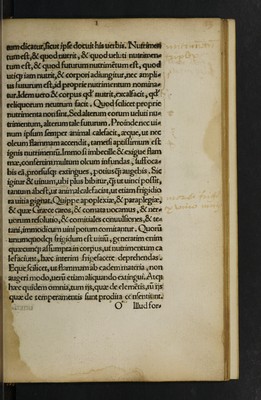 tum dicatur, sicut ipse docuit his verbis. Nutrimen
tum est, & quod nutrit, & quod ueluti nutrimen-
tum est, & quod futurum nutrimentum est, quod
utiq; iam nutrit, & corpori adiungitur, nec ampli-
us futurum est, id proprie nutrimentum nomina-
tur. Idem uero & corpus qd' nutrit, excalfacit, qd'
reliquorum neutrum facit. Quod scilicet proprie
nutrimenta non sint. Sed alterum eorum ueluti nu-
trimentum, alterum tale futurum. Proinde nec ui-
num ipsum semper animal calefacit, æque, ut nec
oleum flammam accendit, tametsi aptissimum est
ignis nutrimentū. Immo si imbecillæ & exiguæ flam
mæ, confertim multum oleum infundas, suffoca-
bis eā, prorsusq; extingues, potius q̄ augebis. Sic
igitur & uinum, ubi plus bibitur, q̄ ut uinci possit,
tantum abest, ut animal calefaciat, ut etiam frigidio
ra uitia gignat. Quippe apoplexiæ, & paraplegiæ,
& quæ Græce caros, & comata uocamus, & ner-
uorum resolutio, & comitiales conuulsiones, & te-
tani, immodicum uini potum comitantur. Quorū
unumquodq; frigidum est uitiū, generatim enim
quæcunq; assumpta in corpus, ut nutrimentum ca
lefaciunt, hæc interim frigefacere deprehendas.
Eque scilicet, ut flammam ab eadem materia, non
augeri modo, uerū etiam aliquando extingui. Atq;
hæc quidem omnia, tum ijs, quæ de elemētis, tū ijs
quæ de temperamentis sunt prodita consentiunt.
O Illud for-